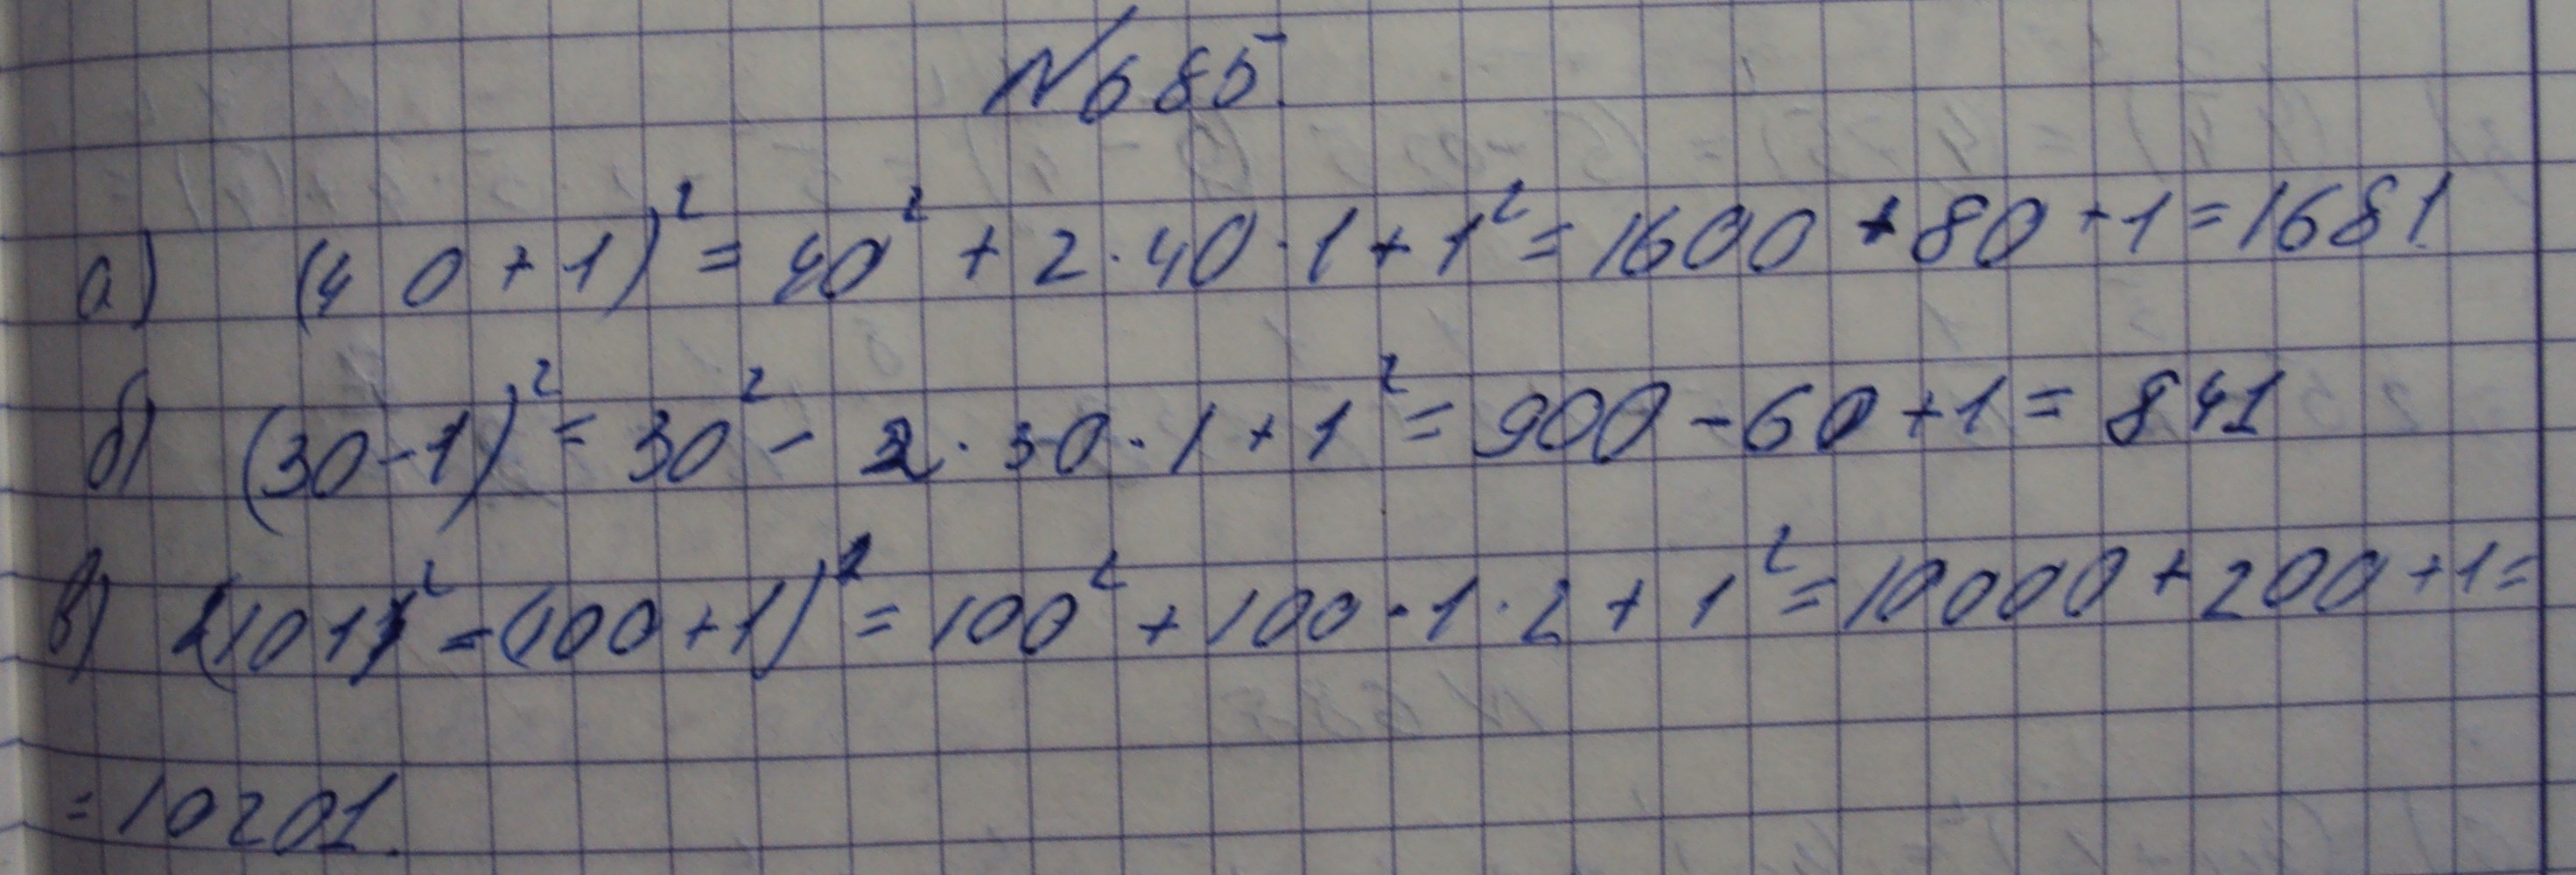 №685.
а) (40+1)² = 40² + 2·40·1 + 1² = 1600 + 80 + 1 = 1681.
б) (30-1)² = 30² - 2·30·1 + 1² = 900 - 60 + 1 = 841
в) (101)² = (100+1)² = 100² + 100·1·2 + 1² = 10000 + 200 + 1 =
= 10201.